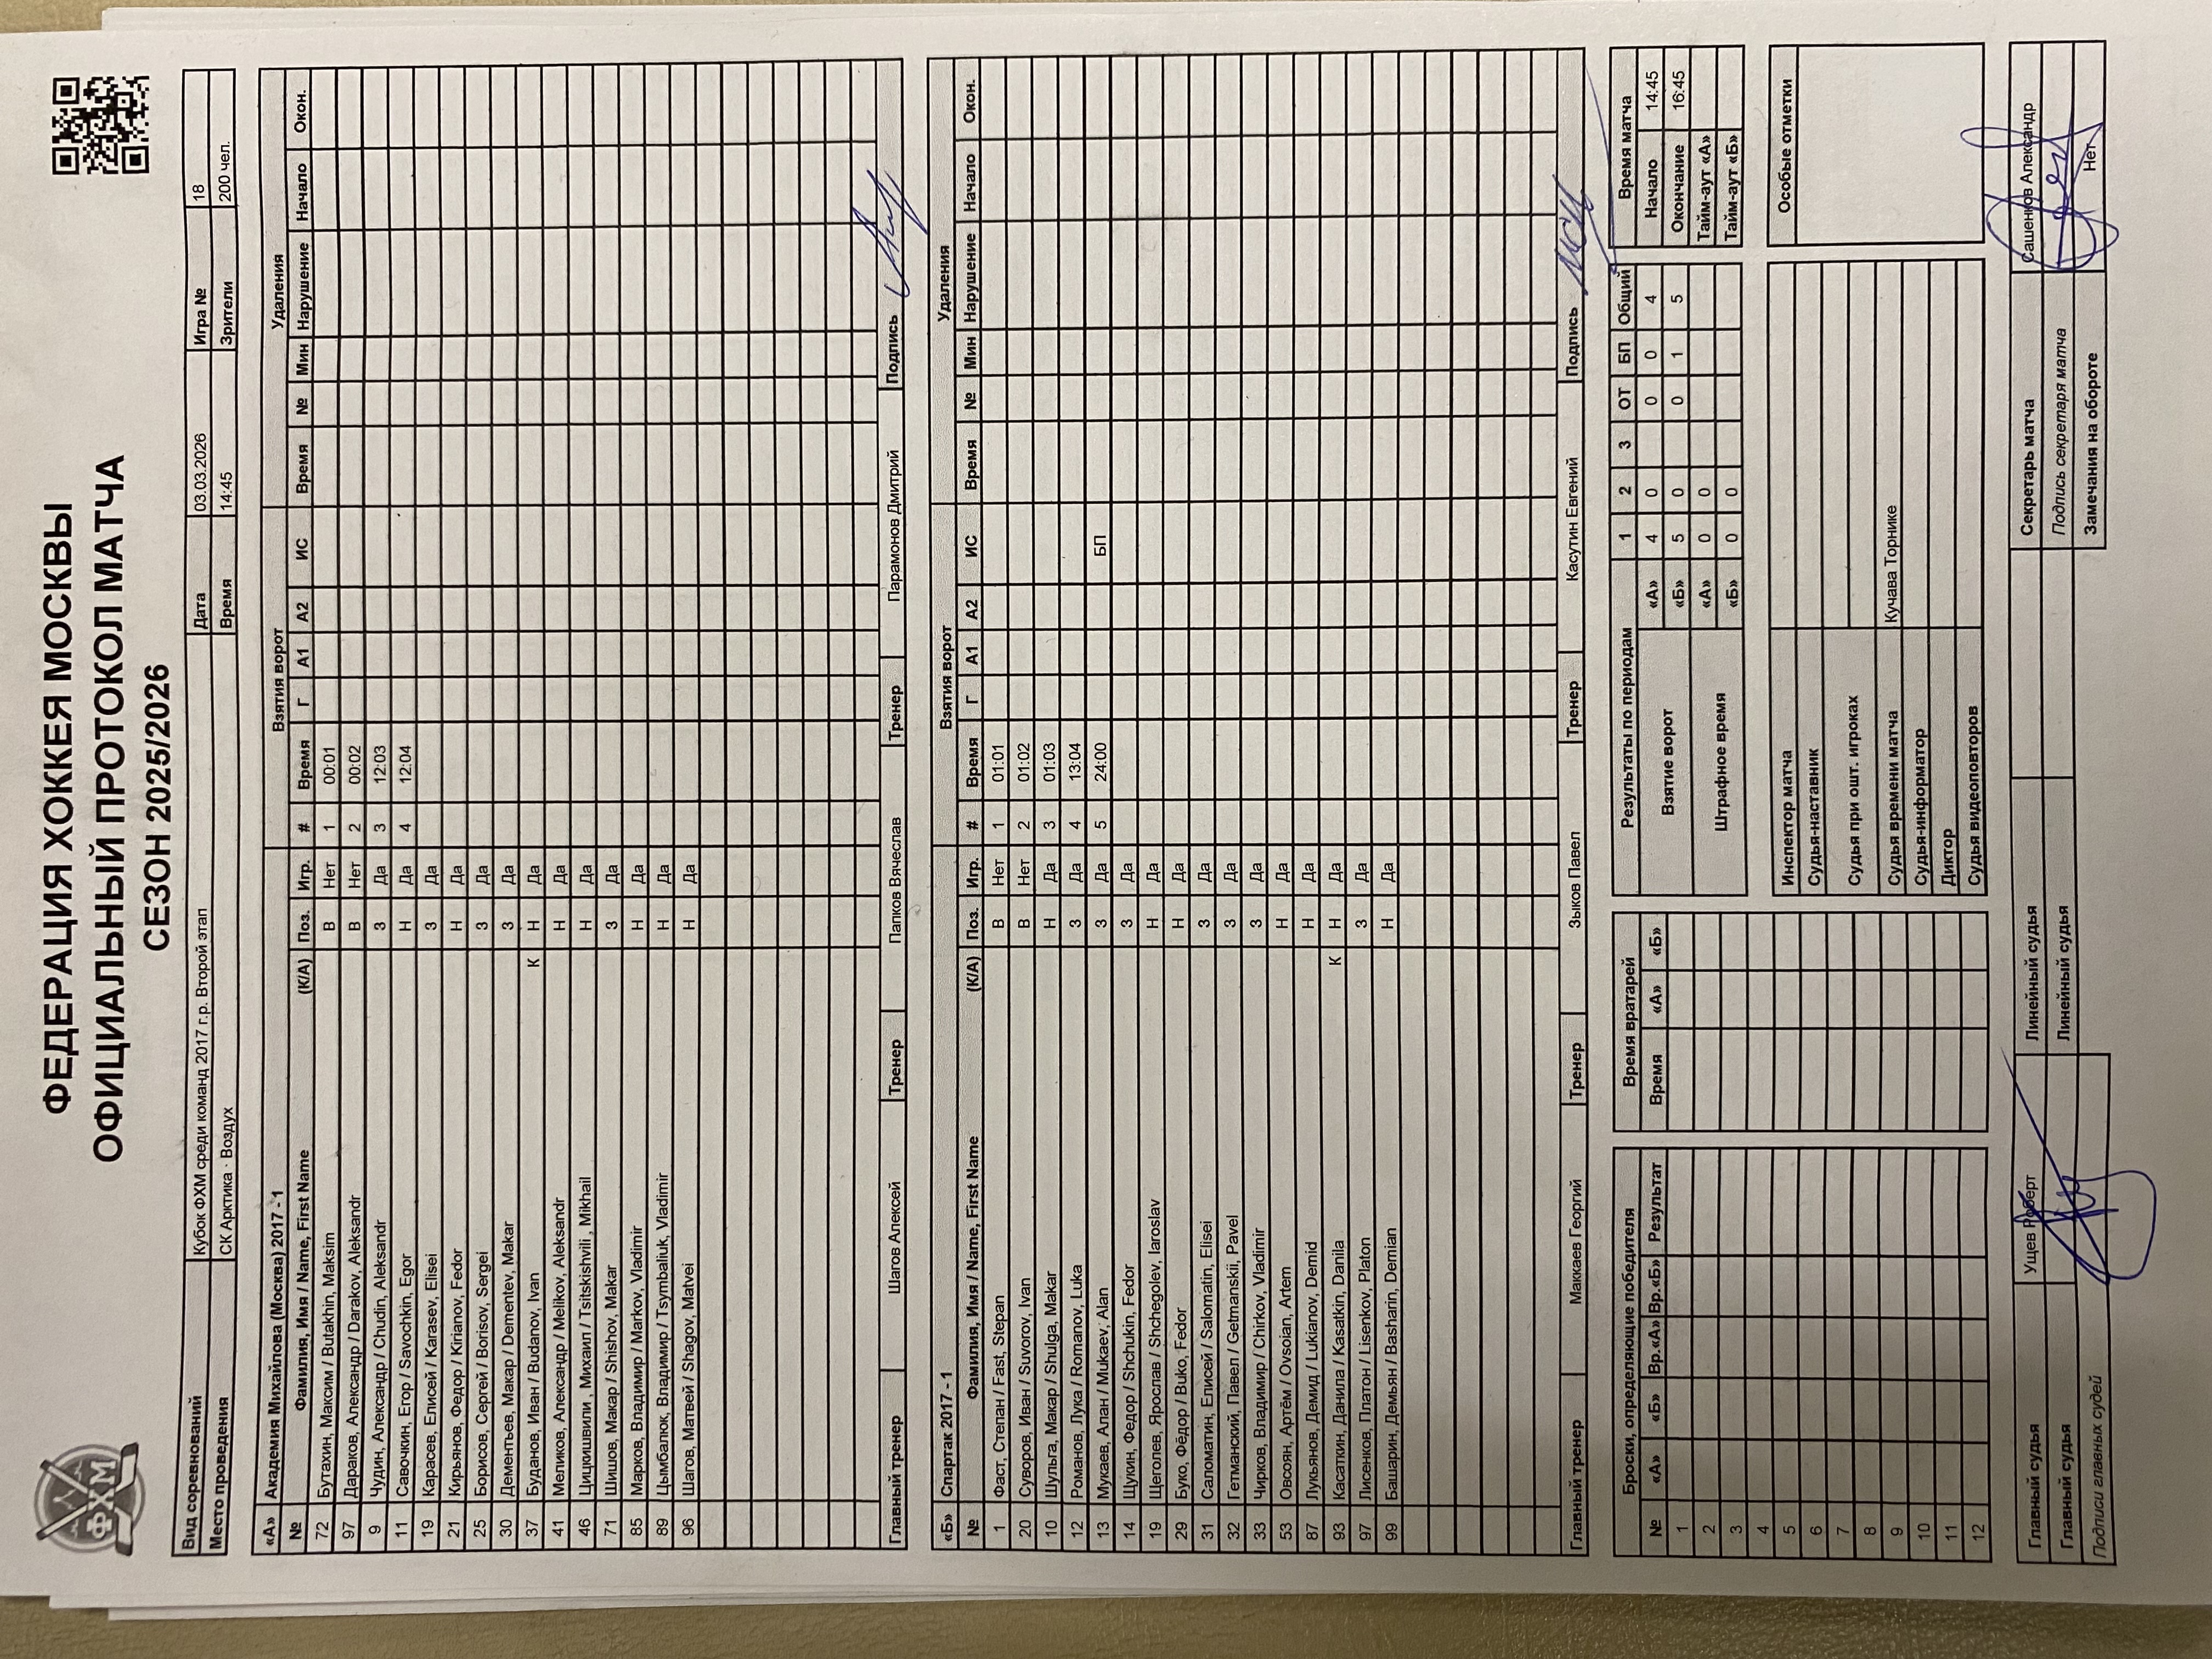 ФХМ
ФЕДЕРАЦИЯ ХОККЕЯ МОСКВЫ
ОФИЦИАЛЬНЫЙ ПРОТОКОЛ МАТЧА
СЕЗОН 2025/2026
Вид соревнований Кубок ФХМ среди команд 2017 г.р. Второй этап Дата 03.03.2026 Игра № 18
Место проведения СК Арктика · Воздух Время 14:45 Зрители 200 чел.
«А» Академия Михайлова (Москва) 2017 - 1 Взятия ворот Удаления
№ Фамилия, Имя / Name, First Name (К/А) Поз. Игр. # Время Г А1 А2 ИС Время № Мин Нарушение Начало Окон.
72 Бутахин, Максим / Butakhin, Maksim В Нет 1 00:01
97 Дараков, Александр / Darakov, Aleksandr В Нет 2 00:02
9 Чудин, Александр / Chudin, Aleksandr З Да 3 12:03
11 Савочкин, Егор / Savochkin, Egor Н Да 4 12:04
19 Карасев, Елисей / Karasev, Elisei З Да
21 Кирьянов, Федор / Kirianov, Fedor Н Да
25 Борисов, Сергей / Borisov, Sergei З Да
30 Дементьев, Макар / Dementev, Makar З Да
37 Буданов, Иван / Budanov, Ivan К Н Да
41 Меликов, Александр / Melikov, Aleksandr Н Да
46 Цицкишвили , Михаил / Tsitskishvili , Mikhail Н Да
71 Шишов, Макар / Shishov, Makar З Да
85 Марков, Владимир / Markov, Vladimir Н Да
89 Цымбалюк, Владимир / Tsymbaliuk, Vladimir Н Да
96 Шагов, Матвей / Shagov, Matvei Н Да
Главный тренер Шагов Алексей Тренер Папков Вячеслав Тренер Парамонов Дмитрий Подпись
«Б» Спартак 2017 - 1 Взятия ворот Удаления
№ Фамилия, Имя / Name, First Name (К/А) Поз. Игр. # Время Г А1 А2 ИС Время № Мин Нарушение Начало Окон.
1 Фаст, Степан / Fast, Stepan В Нет 1 01:01
20 Суворов, Иван / Suvorov, Ivan В Нет 2 01:02
10 Шульга, Макар / Shulga, Makar Н Да 3 01:03
12 Романов, Лука / Romanov, Luka З Да 4 13:04
13 Мукаев, Алан / Mukaev, Alan З Да 5 24:00 БП
14 Щукин, Федор / Shchukin, Fedor З Да
19 Щеголев, Ярослав / Shchegolev, Iaroslav Н Да
29 Буко, Фёдор / Buko, Fedor Н Да
31 Саломатин, Елисей / Salomatin, Elisei З Да
32 Гетманский, Павел / Getmanskii, Pavel З Да
33 Чирков, Владимир / Chirkov, Vladimir З Да
53 Овсоян, Артём / Ovsoian, Artem Н Да
87 Лукьянов, Демид / Lukianov, Demid Н Да
93 Касаткин, Данила / Kasatkin, Danila К Н Да
97 Лисенков, Платон / Lisenkov, Platon З Да
99 Башарин, Демьян / Basharin, Demian Н Да
Главный тренер Маккаев Георгий Тренер Зыков Павел Тренер Касутин Евгений Подпись
Броски, определяющие победителя Время вратарей Результаты по периодам 1 2 3 ОТ БП Общий Время матча
№ «А» «Б» Вр.«А» Вр.«Б» Результат Время «А» «Б» Взятие ворот «А» 4 0 0 0 4 Начало 14:45
1 «Б» 5 0 0 1 5 Окончание 16:45
2 Штрафное время «А» 0 0 Тайм-аут «А»
3 «Б» 0 0 Тайм-аут «Б»
4
5 Инспектор матча Особые отметки
6 Судья-наставник
7 Судья при ошт. игроках
8
9 Судья времени матча Кучава Торнике
10 Судья-информатор
11 Диктор
12 Судья видеоповторов
Главный судья Ущев Роберт Линейный судья Секретарь матча Сашенков Александр
Главный судья Линейный судья Подпись секретаря матча
Подписи главных судей Замечания на обороте Нет